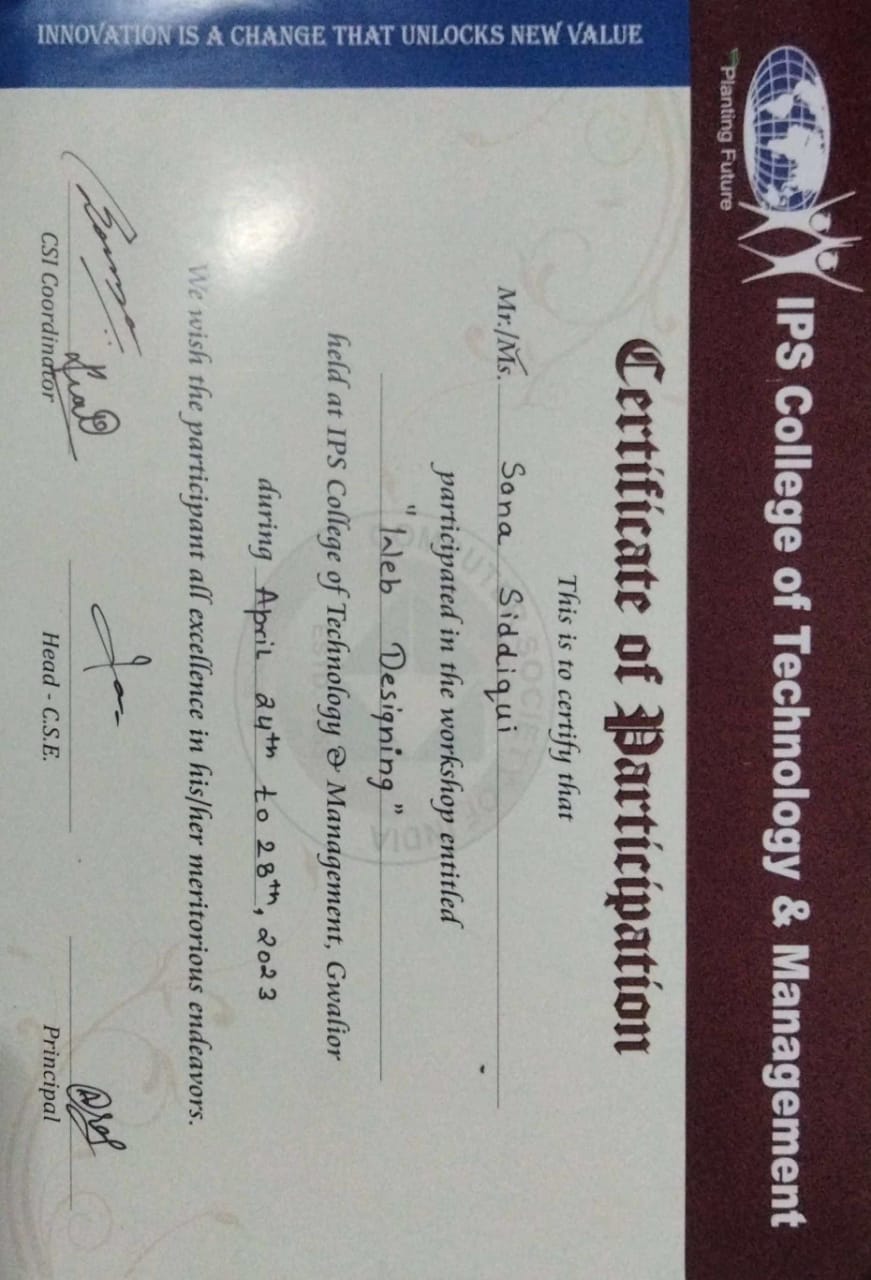 IPS College of Technology & Management
Planting Future
INNOVATION IS A CHANGE THAT UNLOCKS NEW VALUE
Certificate of Participation
This is to certify that
Mr./Ms. Sona Siddiqui
participated in the workshop entitled
"Web Designing"
held at IPS College of Technology & Management, Gwalior
during April 24th to 28th, 2023
We wish the participant all excellence in his/her meritorious endeavors.
CSI Coordinator
Head - C.S.E.
Principal
COMPUTER SOCIETY OF INDIA
ESTD.